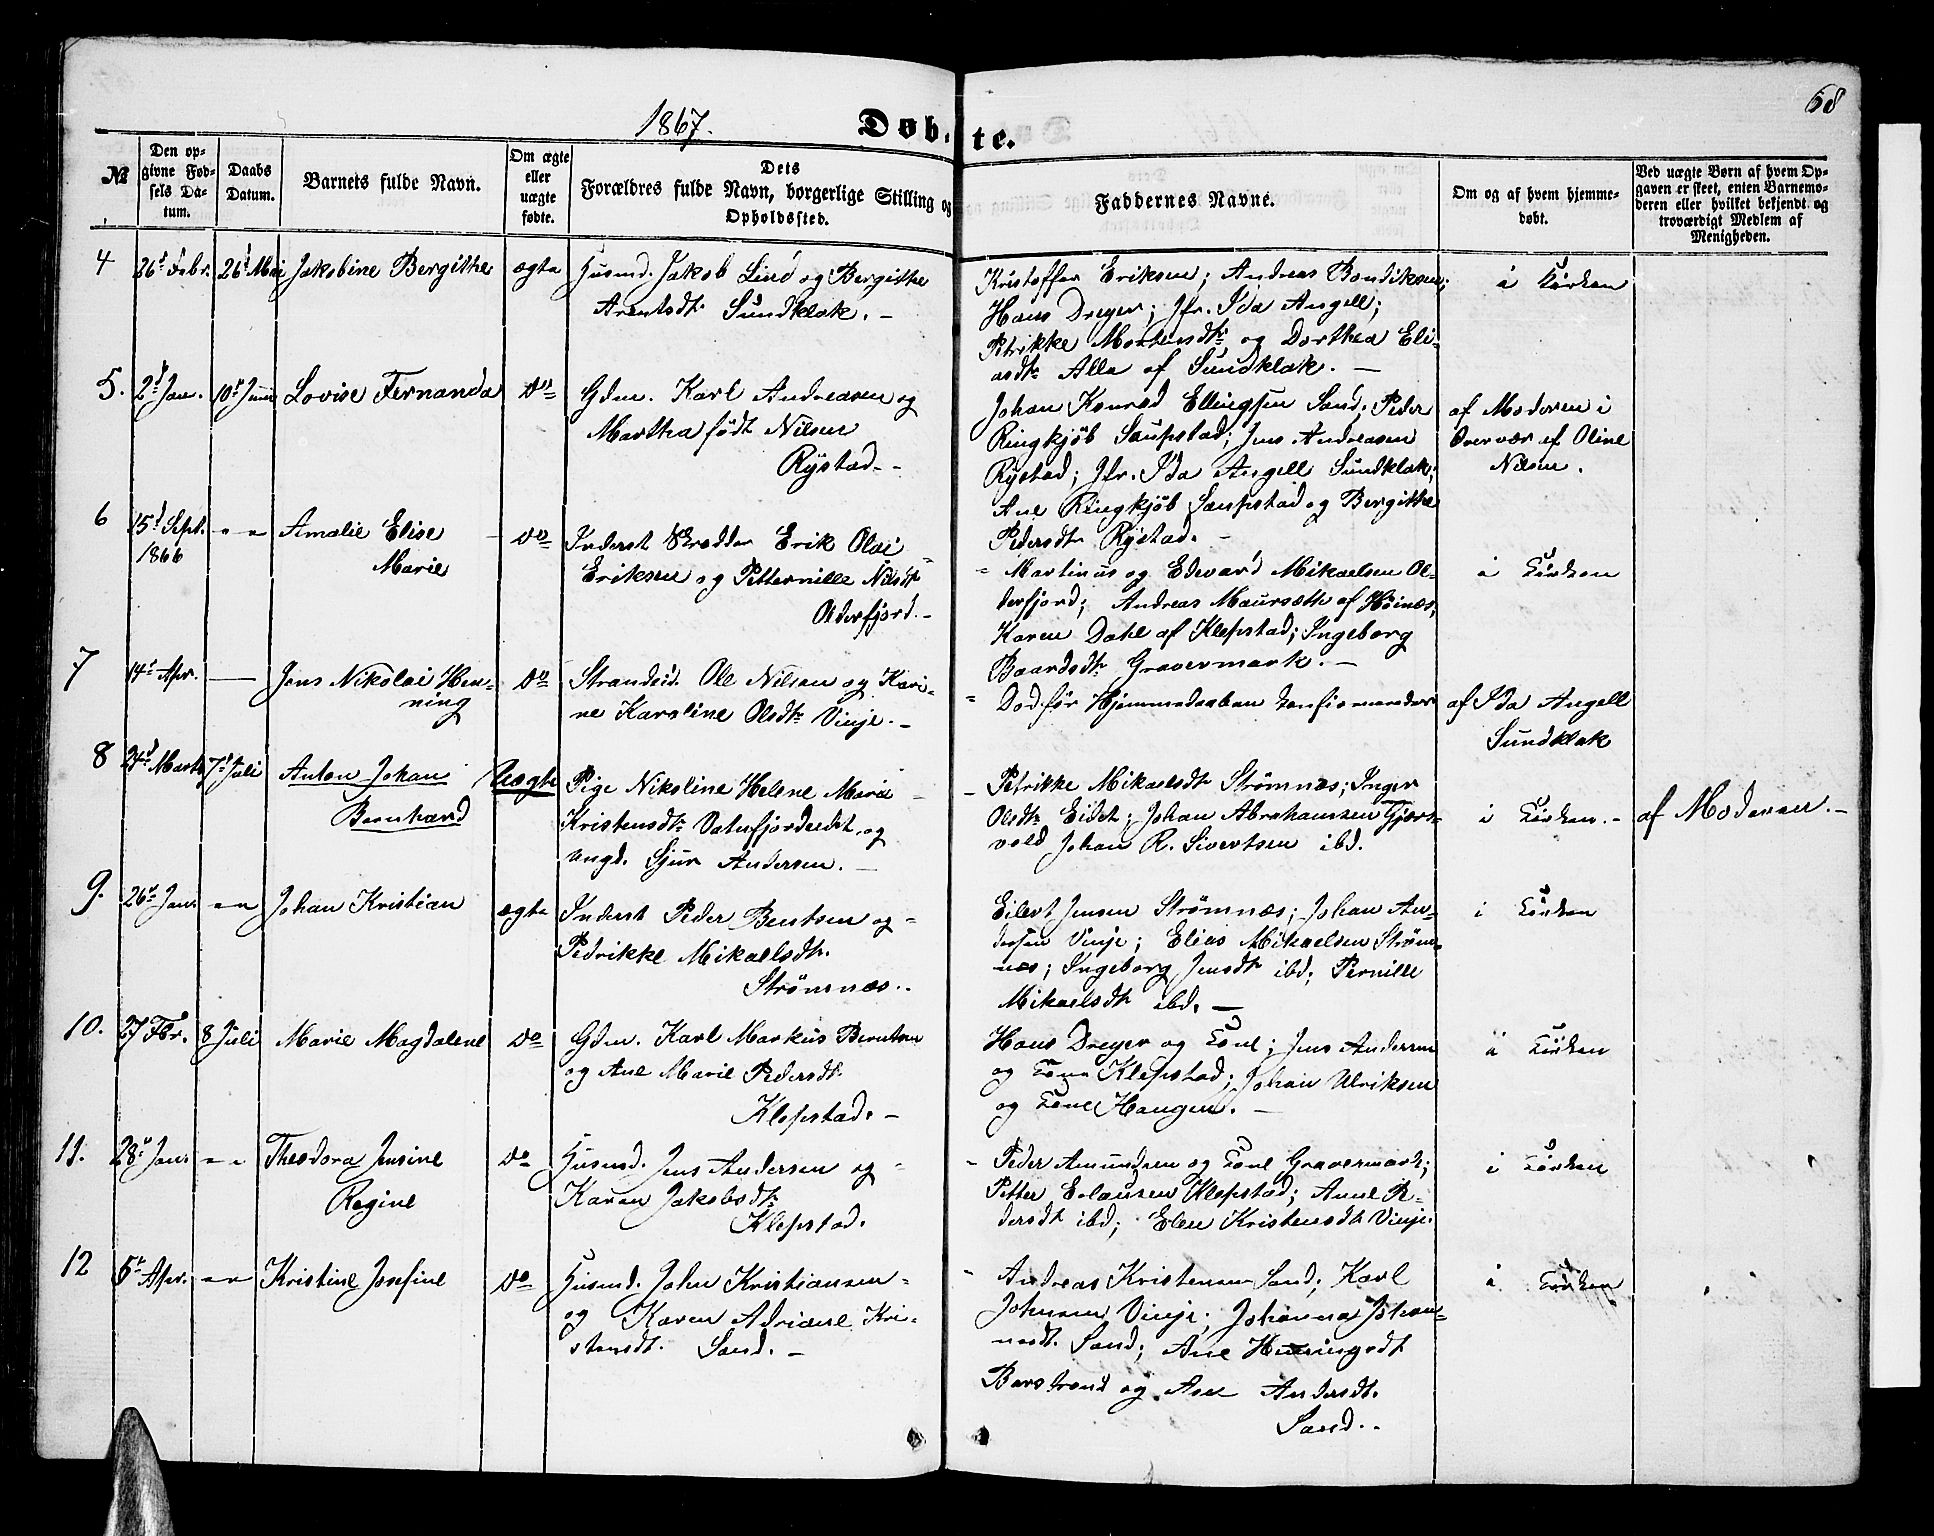 68
1867.
Døbte.
№
Den opgivne Fødsels Datum.
Daabs Datum.
Barnets fulde Navn.
Om ægte eller uægte fødte.
Dets Forældres fulde Navn, borgerlige Stilling og Opholdssted.
Faddernes Navne.
Om og af hvem hjemmedøbt.
Ved uægte Børn af hvem Opgaven er skeet, enten Barnemoderen eller hvilket bekjendt og troværdigt Medlem af Menigheden.
4
26d Febr.
26d Mai
Jakobine Bergithe
ægte
Husmd. Jakob Lind og Bergithe
Arentsdtr Sundklak. -
Kristoffer Eriksen; Andreas Bendiksen;
Hans Dreyer; Jfr. Ida Angell;
Petrikke Mortensdtr og Dorthea Eli-
asdtr Alle af Sundklak. -
i Kirken
5.
2d Jan.
10d Juni
Lovise Fernanda
Do
Gdm. Karl Andreasen og
Martha født Nilsen
Rystad. -
Johan Konrad Ellingsen Sand; Peder
Ringkjøb Saupstad; Jens Andreasen
Rystad; Jfr. Ida Angell Sundklak;
Ane Ringkjøb Saupstad og Bergithe
Pedersdtr Rystad. -
af Moderen i
Overvær af Oline
Nilsen.
6
15d Sept.
1866
" "
Amalie Elise
Marie
Do
Inderst Skrædder Erik Olai
Eriksen og Petternille Nilsdtr
Olderfjord. -
- Martinus og Edevard Mikaelsen Ol-
derfjord; Andreas Maursæth af Høinæs,
Karen Dahl af Klepstad; Ingeborg
Baardsdtr Gravermark. -
i Kirken
7
14d Apr.
-
Jens Nikolai Hen-
ning
Do
Strandsid. Ole Nilsen og Kari-
ne Karoline Olsdtr Vinje. -
- Død før Hjemmedaaben konfirmeredes
af Ida Angell
Sundklak
8
24d Marts
7d Juli
Anton Johan
Bernhard
Uægte
Pige Nikoline Helene Marie -
Kristensdtr Vatnfjordeidet og
Ungd. Sjur Andersen. -
- Petrikke Mikaelsdtr Strømnæs; Inger
Olsdtr Eidet; Johan Abrahamsen Gjers-
vold Johan R. Sivertsen ibd.
i Kirken. -
af Moderen. -
9.
26d Jan.
" "
Johan Kristian
ægte
Inderst Peder Bentsen og -
Pedrikke Mikaelsdtr.
Strømnæs..
Eilert Jensen Strømnæs; Johan An-
dersen Vinje; Elias Mikaelsen Strøm-
næs; Ingeborg Jensdtr ibd; Pernille
Mikaelsdtr ibd. -
i Kirken
10.
27 Fbr.
8 Juli
Marie Magdalene
Do
Gdm. Karl Markus Berntsen
og Ane Marie Pedersdtr.
Klepstad. -
Hans Dreyer og Kone; Jens Andersen
og Kone Klepstad; Johan Ulriksen
og Kone Haugen. -
i Kirken
11.
28d Jan.
" "
Theodora Jensine
Regine
Do
Husmd. Jens Andersen og -
Karen Jakobsdtr
Klepstad.
- Peder Amundsen og Kone Gravermark;
Petter Erlausen Klepstad; Anne Pe-
dersdtr ibd; Elen Kristensdtr Vinje.
i Kirken
12
5d Apr.
" "
Kristine Josefine
Do
Husmd. John Kristiansen -
og Karen Adriane Kri-
stensdtr. Sand. -
- Andreas Kristensen Sand; Karl
Johnsen Vinje; Johanna Johan-
nesdt. Sand; Ane Henningsdt
Barstrand og Ane Andersdt.
Sand. -
i Kirken